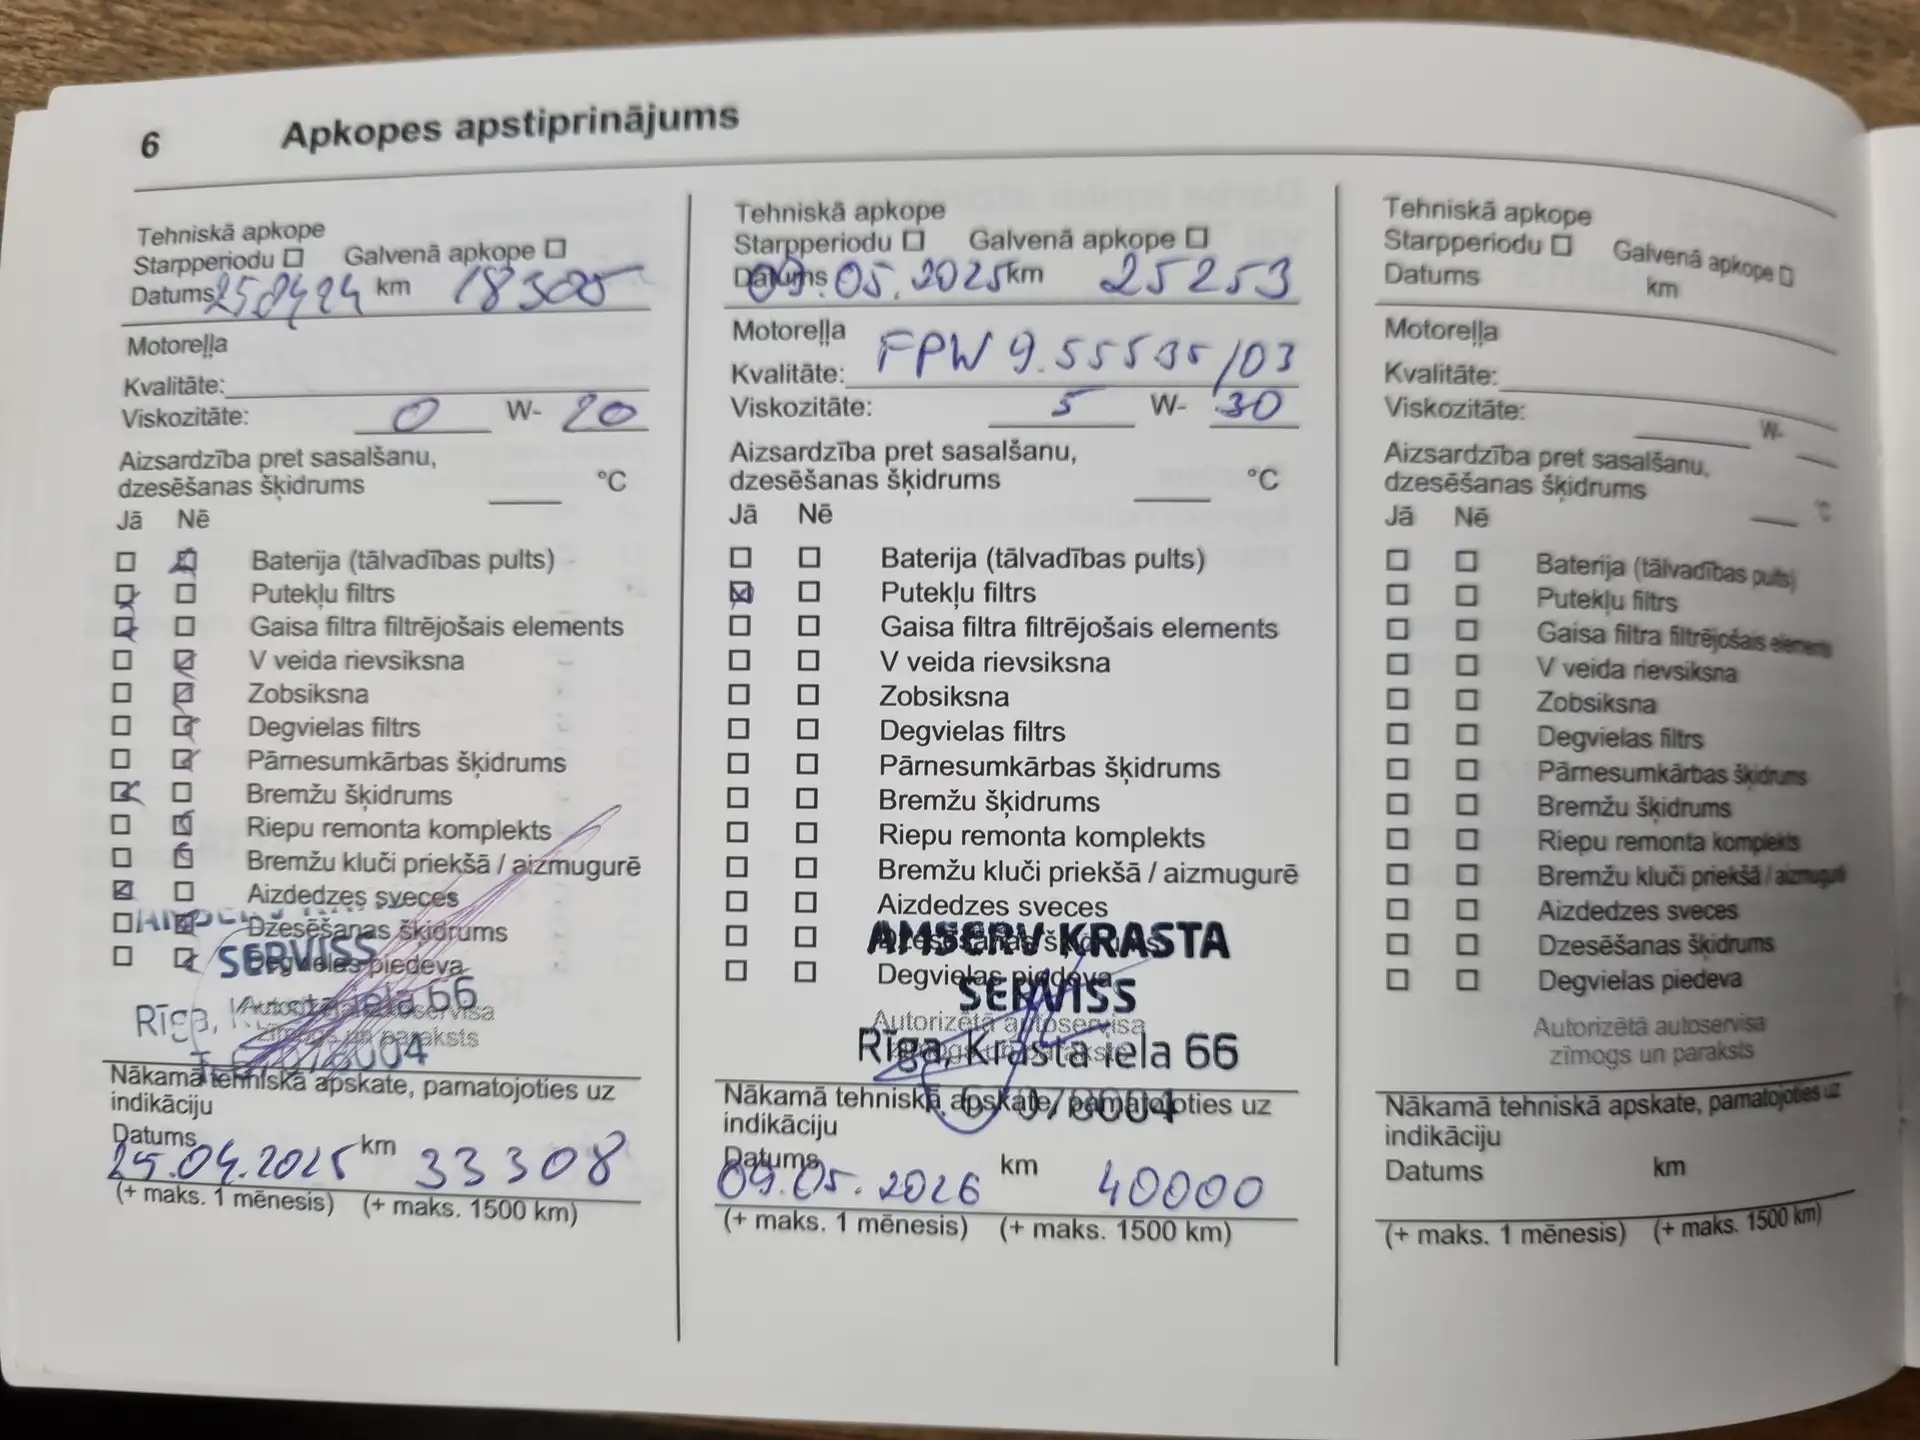 6
Apkopes apstiprinājums
Tehniskā apkope
Starpperiodu ☐ Galvenā apkope ☐
Datums 25.04.24 km 18305
Motoreļļa
Kvalitāte:
Viskozitāte: 0 W- 20
Aizsardzība pret sasalšanu,
dzesēšanas šķidrums °C
Jā Nē
Baterija (tālvadības pults)
Putekļu filtrs
Gaisa filtra filtrējošais elements
V veida rievsiksna
Zobsiksna
Degvielas filtrs
Pārnesumkārbas šķidrums
Bremžu šķidrums
Riepu remonta komplekts
Bremžu kluči priekšā / aizmugurē
Aizdedzes sveces
Dzesēšanas šķidrums
Degvielas piedeva
SERVISS
Autorizētā autoservisa
zīmogs un paraksts
Rīga, Krasta iela 66
Nākamā tehniskā apskate, pamatojoties uz
indikāciju
Datums 25.04.2025 km 33308
(+ maks. 1 mēnesis) (+ maks. 1500 km)
Tehniskā apkope
Starpperiodu ☐ Galvenā apkope ☐
Datums 09.05.2025 km 25253
Motoreļļa
Kvalitāte: FPW 9.55535/03
Viskozitāte: 5 W- 30
Aizsardzība pret sasalšanu,
dzesēšanas šķidrums °C
Jā Nē
Baterija (tālvadības pults)
Putekļu filtrs
Gaisa filtra filtrējošais elements
V veida rievsiksna
Zobsiksna
Degvielas filtrs
Pārnesumkārbas šķidrums
Bremžu šķidrums
Riepu remonta komplekts
Bremžu kluči priekšā / aizmugurē
Aizdedzes sveces
Dzesēšanas šķidrums
Degvielas piedeva
AMSERV KRASTA
SERVISS
Autorizētā autoservisa
zīmogs un paraksts
Rīga, Krasta iela 66
Nākamā tehniskā apskate, pamatojoties uz
indikāciju
Datums 09.05.2026 km 40000
(+ maks. 1 mēnesis) (+ maks. 1500 km)
Tehniskā apkope
Starpperiodu ☐ Galvenā apkope ☐
Datums km
Motoreļļa
Kvalitāte:
Viskozitāte: W-
Aizsardzība pret sasalšanu,
dzesēšanas šķidrums °C
Jā Nē
Baterija (tālvadības pults)
Putekļu filtrs
Gaisa filtra filtrējošais elements
V veida rievsiksna
Zobsiksna
Degvielas filtrs
Pārnesumkārbas šķidrums
Bremžu šķidrums
Riepu remonta komplekts
Bremžu kluči priekšā / aizmugurē
Aizdedzes sveces
Dzesēšanas šķidrums
Degvielas piedeva
Autorizētā autoservisa
zīmogs un paraksts
Nākamā tehniskā apskate, pamatojoties uz
indikāciju
Datums km
(+ maks. 1 mēnesis) (+ maks. 1500 km)